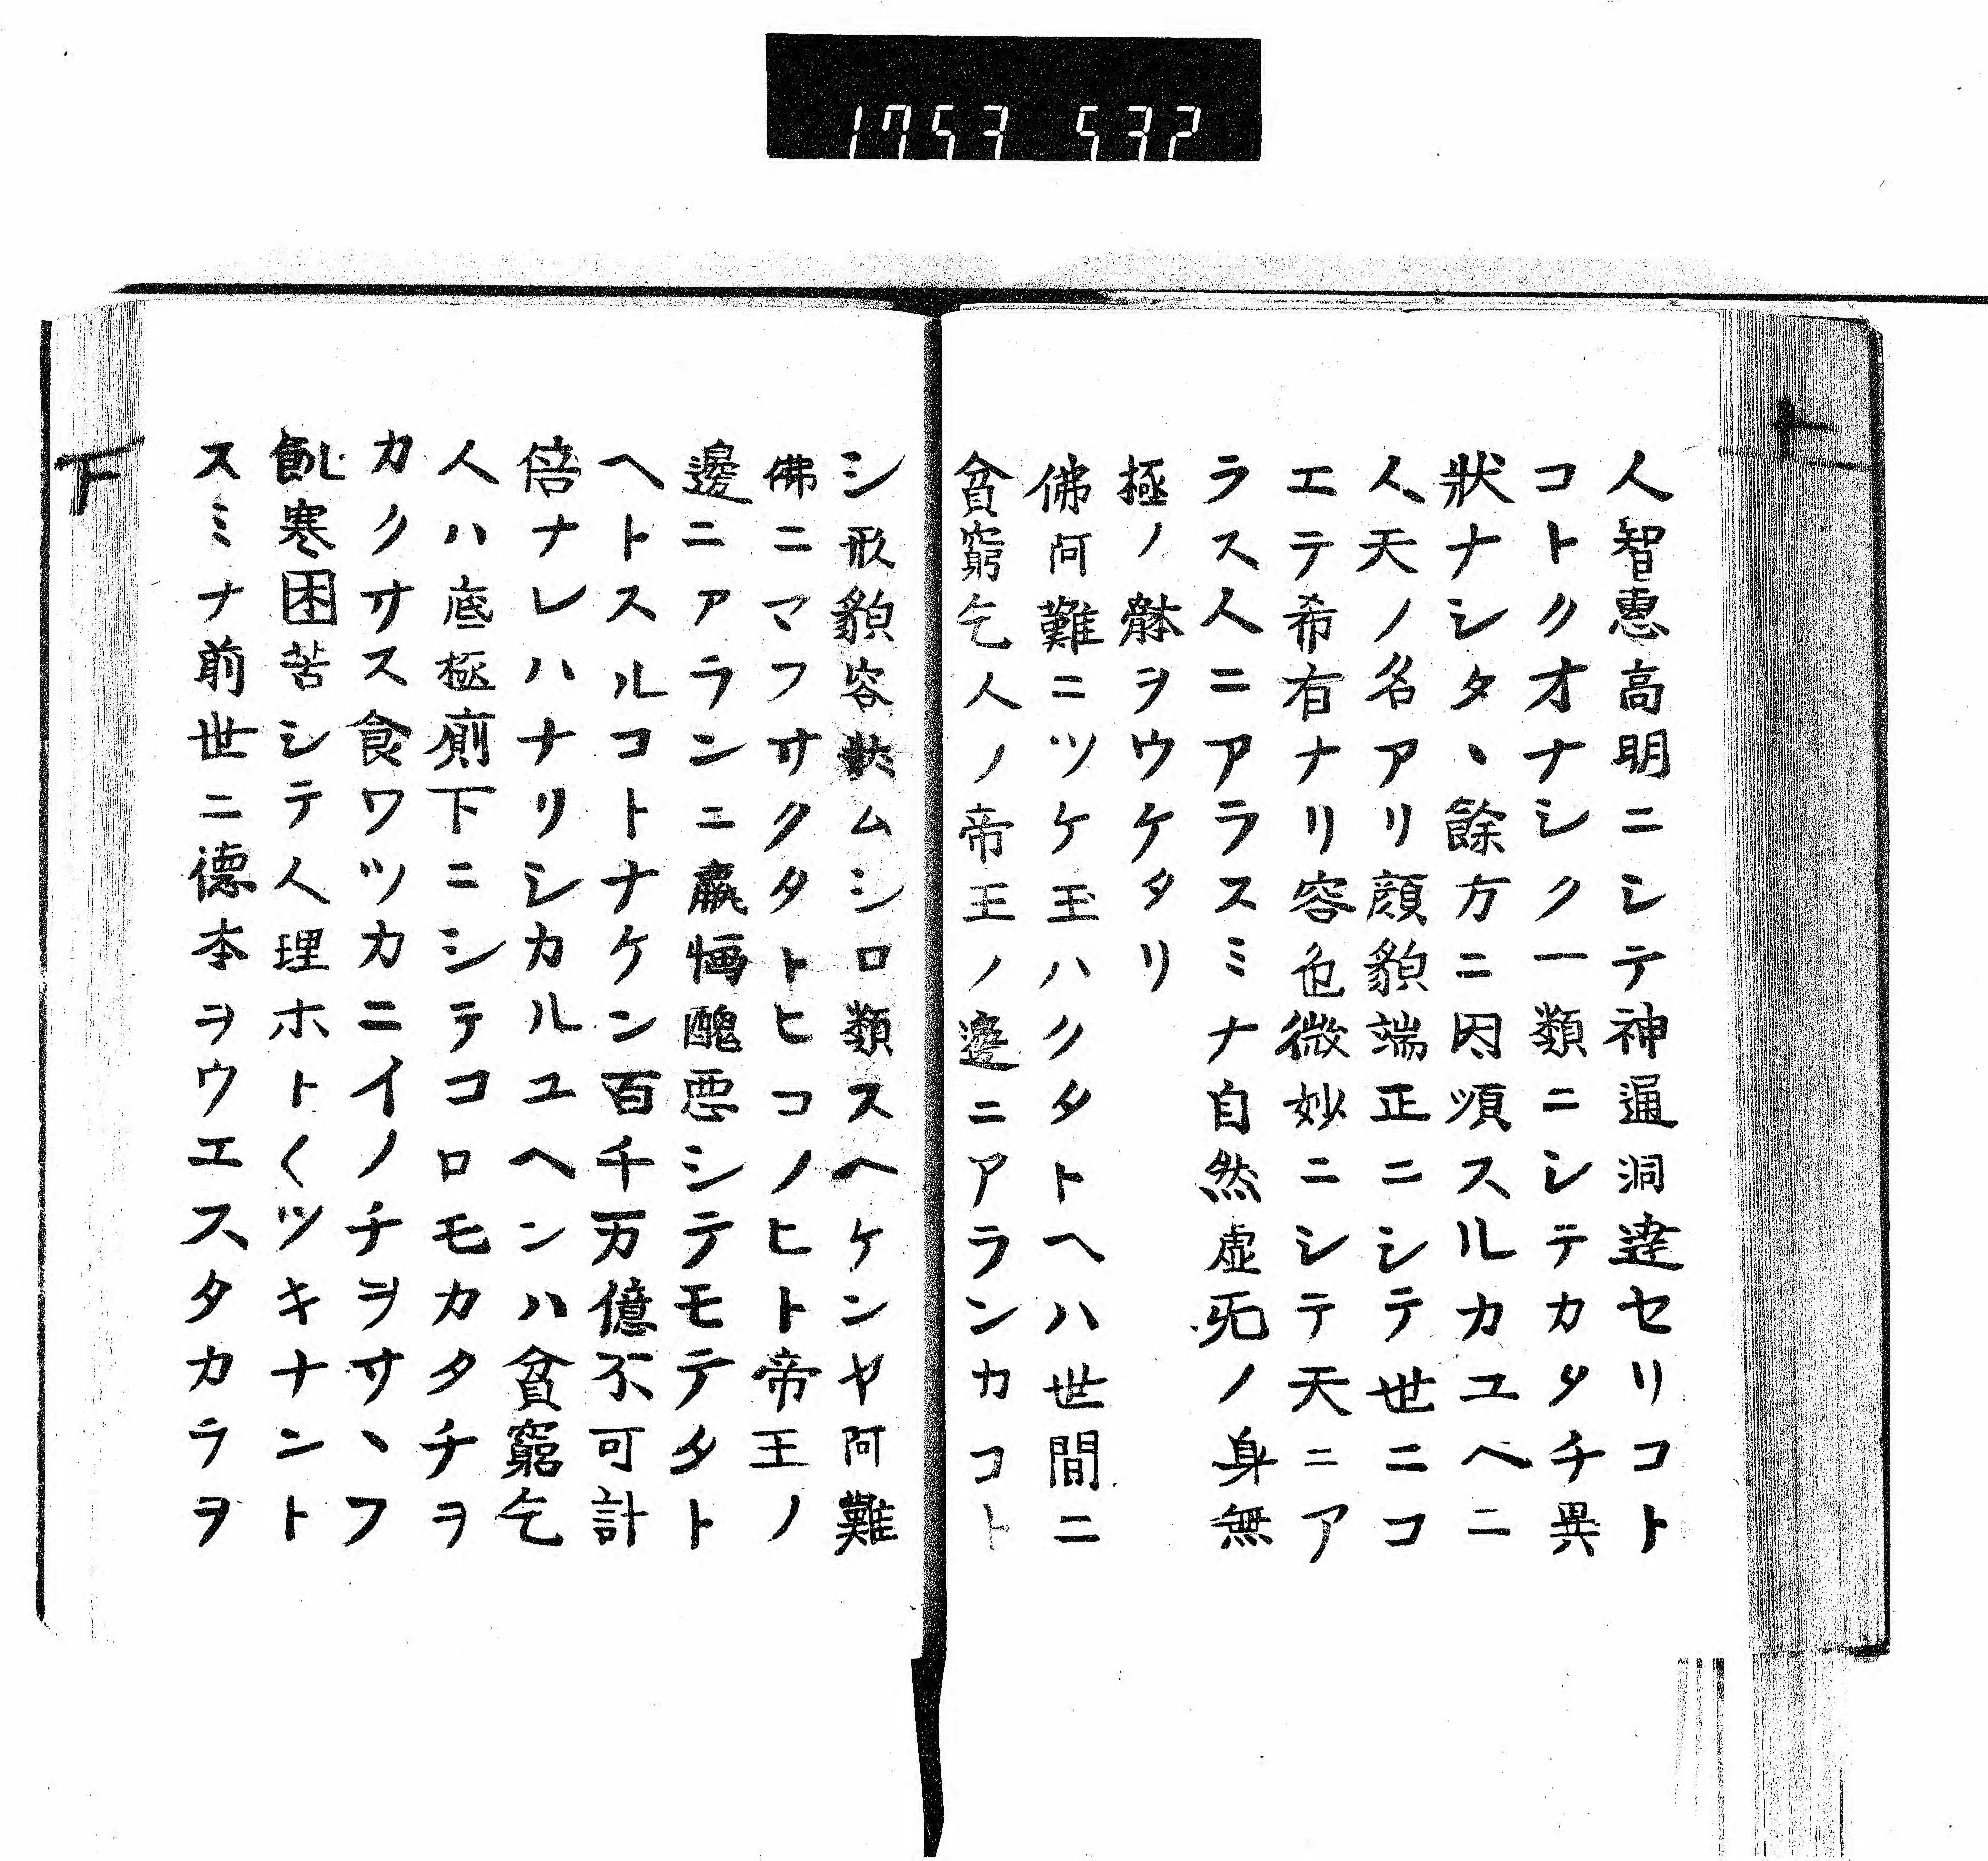 1753 532
人智惠髙明ニシテ神通洞達セリコト
コトクオナシク一類ニシテカタチ異
狀ナシタヽ餘方ニ因順スルカユヘニ
人天ノ名アリ顔貌端正ニシテ世ニコ
エテ希有ナリ容色微妙ニシテ天ニア
ラス人ニアラスミナ自然虚旡ノ身無
極ノ躰ヲウケタリ
佛阿難ニツケ玉ハクタトヘハ世間ニ
貧窮乞人ノ帝王ノ邊ニアランカコト
シ形貌容狀ムシロ類スヘケンヤ阿難
佛ニマフサクタトヒコノヒト帝王ノ
邊ニアランニ羸惱醜悪シテモテタト
ヘトスルコトナケン百千万億不可計
倍ナレハナリシカルユヘンハ貧窮乞
人ハ底極廁下ニシテコロモカタチヲ
カクサス食ワツカニイノチヲサヽフ
飢寒困苦シテ人理ホト〱ツキナント
スミナ前世ニ德本ヲウエスタカラヲ
下